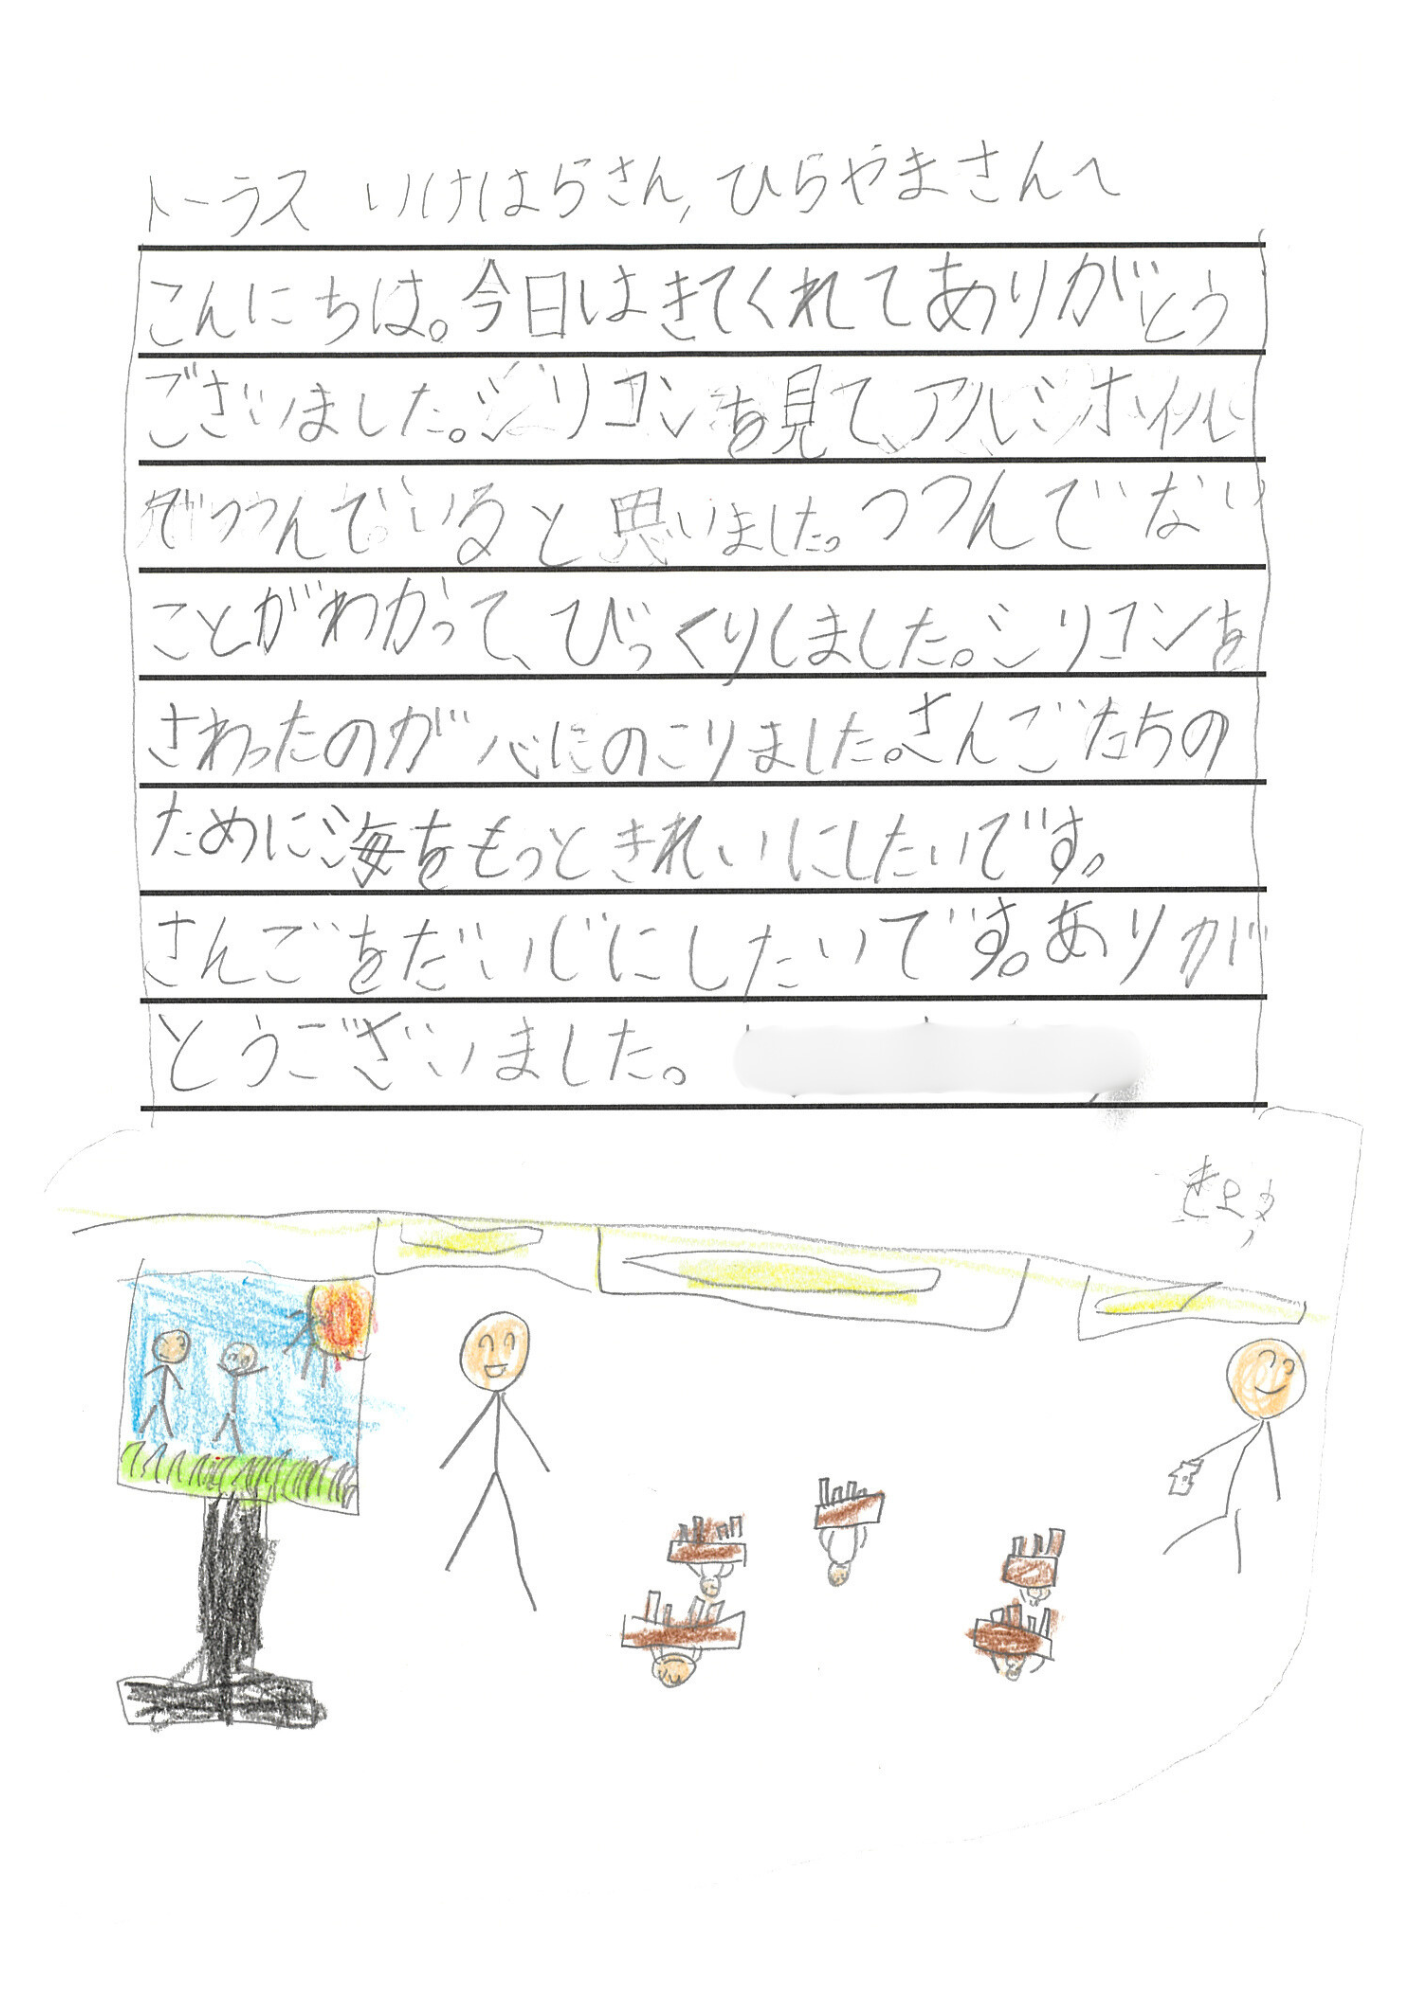 トーラス いけはらさん,ひらやまさんへ
こんにちは。今日はきてくれてありがとう
ございました。シリコンを見て、アルミホイル
でつつんでいると思いました。つつんでない
ことがわかって、びっくりしました。シリコンを
さわったのが心にのこりました。さんごたちの
ために海をもっときれいにしたいです。
さんごをだいじにしたいです。ありが
とうございました。